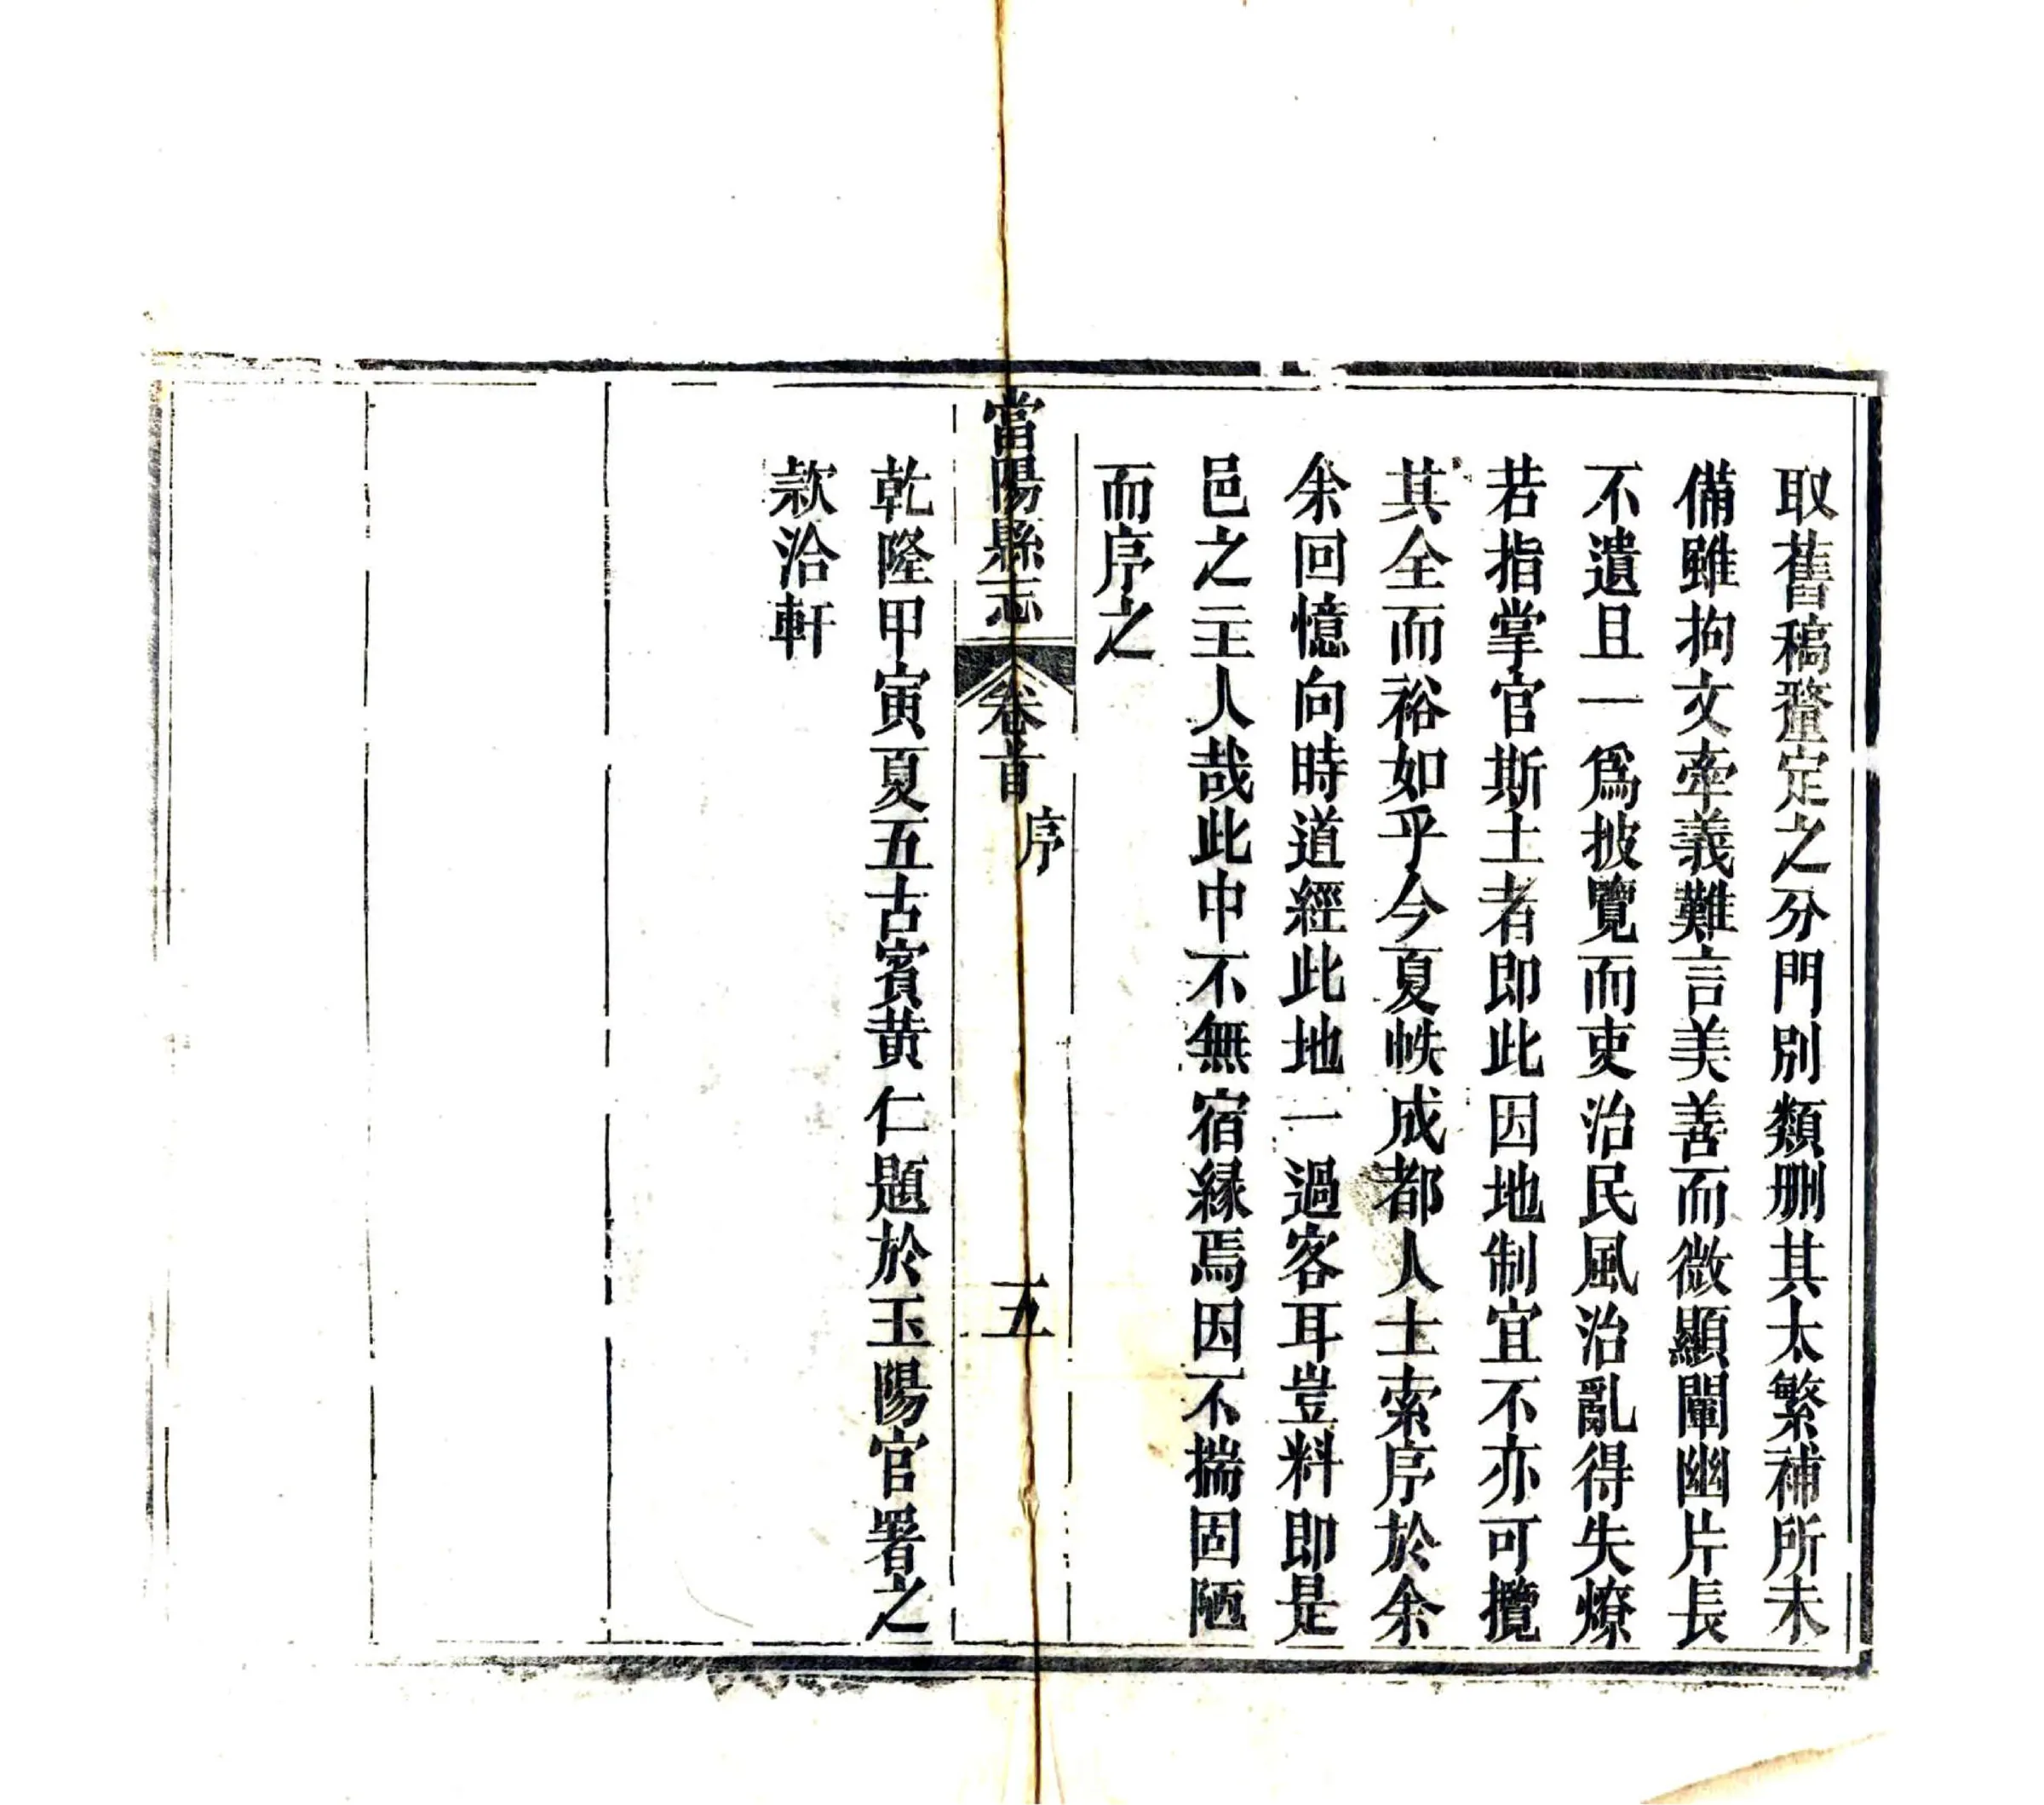 取舊稿釐定之分門別類刪其太繁補所未
備雖拘文牽義難言美善而微顯闡幽片長
不遺且一爲披覽而吏治民風治亂得失燎
若指掌官斯土者即此因地制宜不亦可攬
其全而裕如乎今夏帙成都人士索序於余
余回憶向時道經此地一過客耳豈料即是
邑之主人哉此中不無宿緣焉因不揣固陋
而序之
當陽縣志 卷首 序 五
乾隆甲寅夏五古賓黄仁題於玉陽官署之
款洽軒